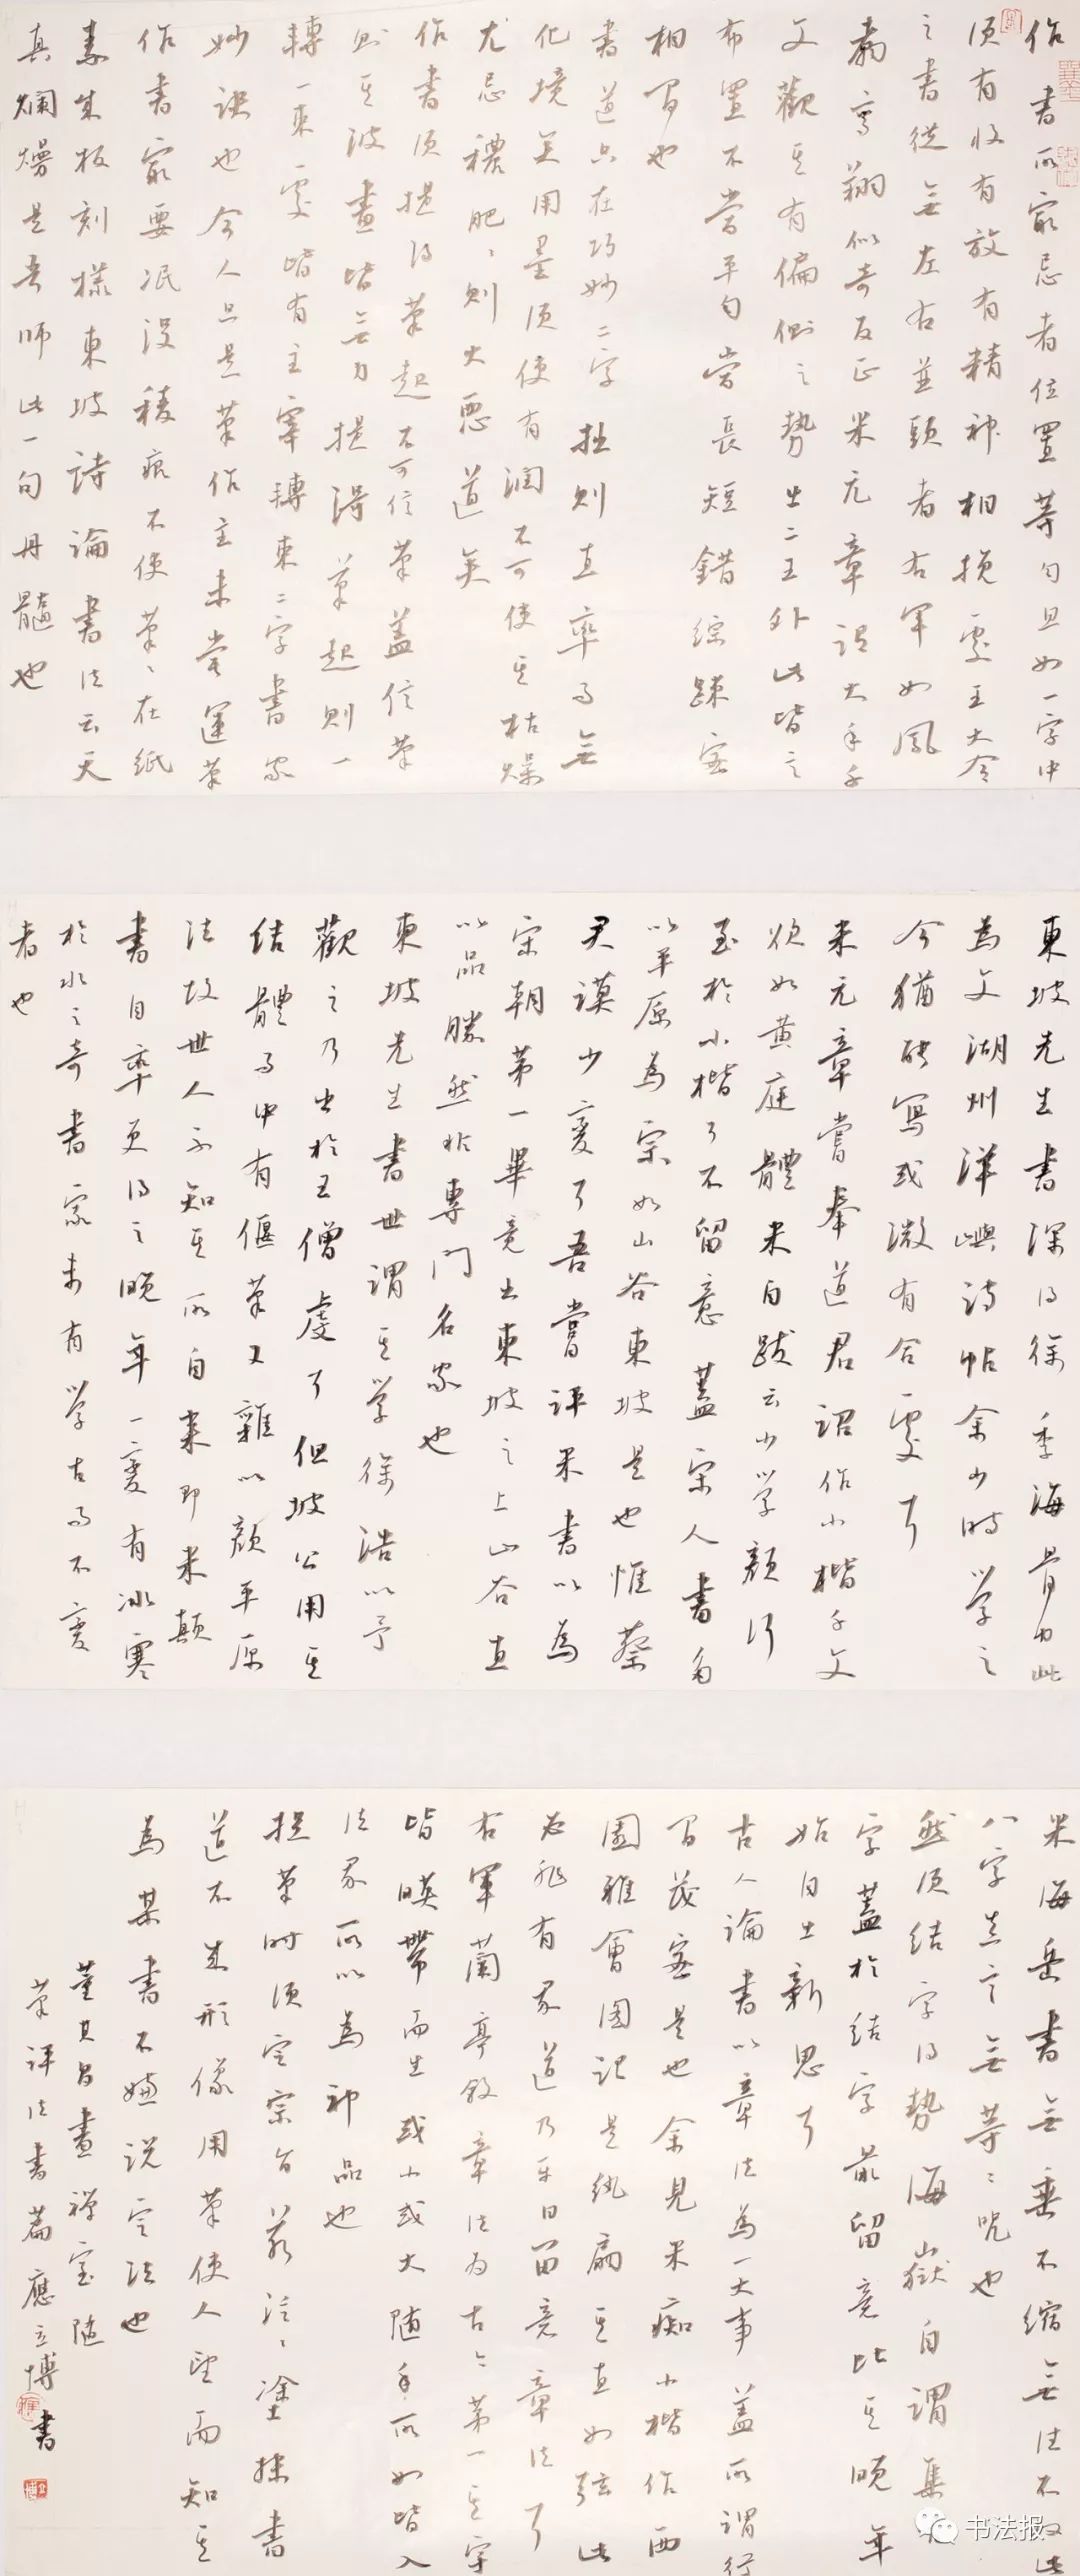 作書所最忌者位置等勻且如一字中
須有收有放有精神相挽處王大令
之書從無左右並頭者右軍如鳳
翥鸞翔似奇反正米元章謂大年千
文觀其有偏側之勢出二王外此皆言
布置不當平勻當長短錯綜疎密
相間也
書道只在巧妙二字拙則直率而無
化境矣用墨須使有潤不可使其枯燥
尤忌穠肥肥則大惡道矣
作書須提得筆起不可信筆蓋信筆
則其波畫皆無力提得筆起則一
轉一束處皆有主宰轉束二字書家
妙訣也今人只是筆作主未嘗運筆
作書最要泯沒稜痕不使筆筆在紙
素成板刻樣東坡詩論書法云天
真爛熳是吾師此一句丹髓也
東坡先生書深得徐季海骨力此
為文湖州洋嶼詩帖余少時學之
今猶能寫或微有合處耳
米元章嘗奉道君詔作小楷千文
欲如黃庭體米自跋云少學顏行
至於小楷了不留意蓋宋人書多
以平原為宗如山谷東坡是也惟蔡
君謨少變耳吾嘗評米書以為
宋朝第一畢竟出東坡之上山谷直
以品勝然非專門名家也
東坡先生書世謂其學徐浩以予
觀之乃出於王僧虔耳但坡公用其
結體而中有偃筆又雜以顏平原
法故世人不知其所自來即米顛
書自率更得之晚年一變有冰寒
於水之奇書家未有學古而不變
者也
米海岳書無垂不縮無往不收此
八字真言無等等咒也
然須結字得勢海嶽自謂集古
字蓋於結字最留意比其晚年
始自出新思耳
古人論書以章法為一大事蓋所謂行
間茂密是也余見米癡小楷作西
園雅會圖記是紈扇其直如弦此
必非有他道乃平日留意章法耳
右軍蘭亭敘章法為古今第一其字
皆暎帶而生或小或大隨手所如皆入
法則所以為神品也
捉筆時須定宗旨若泛泛塗抹書
道不成形像用筆使人望而知其
為某書不嫌說定法也
董其昌畫禪室隨
筆評法書篇應立博書
书法报